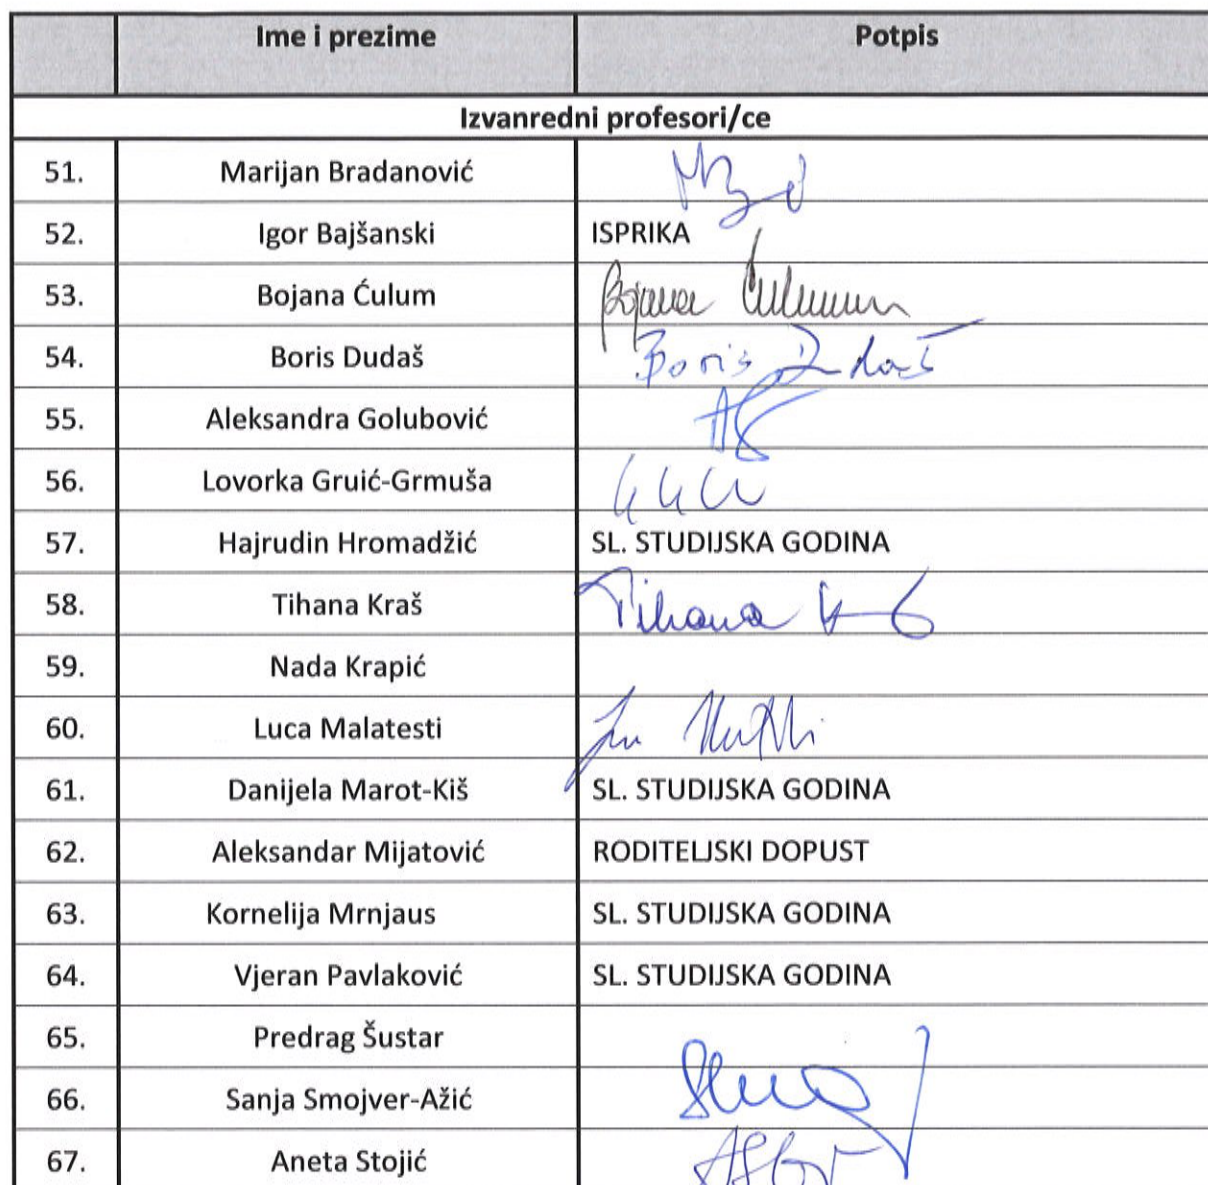 Ime i prezime Potpis
Izvanredni profesori/ce
51. Marijan Bradanović
52. Igor Bajšanski ISPRIKA
53. Bojana Ćulum Bojana Ćulum
54. Boris Dudaš Boris Dudaš
55. Aleksandra Golubović
56. Lovorka Gruić-Grmuša
57. Hajrudin Hromadžić SL. STUDIJSKA GODINA
58. Tihana Kraš Tihana
59. Nada Krapić
60. Luca Malatesti
61. Danijela Marot-Kiš SL. STUDIJSKA GODINA
62. Aleksandar Mijatović RODITELJSKI DOPUST
63. Kornelija Mrnjaus SL. STUDIJSKA GODINA
64. Vjeran Pavlaković SL. STUDIJSKA GODINA
65. Predrag Šustar
66. Sanja Smojver-Ažić
67. Aneta Stojić